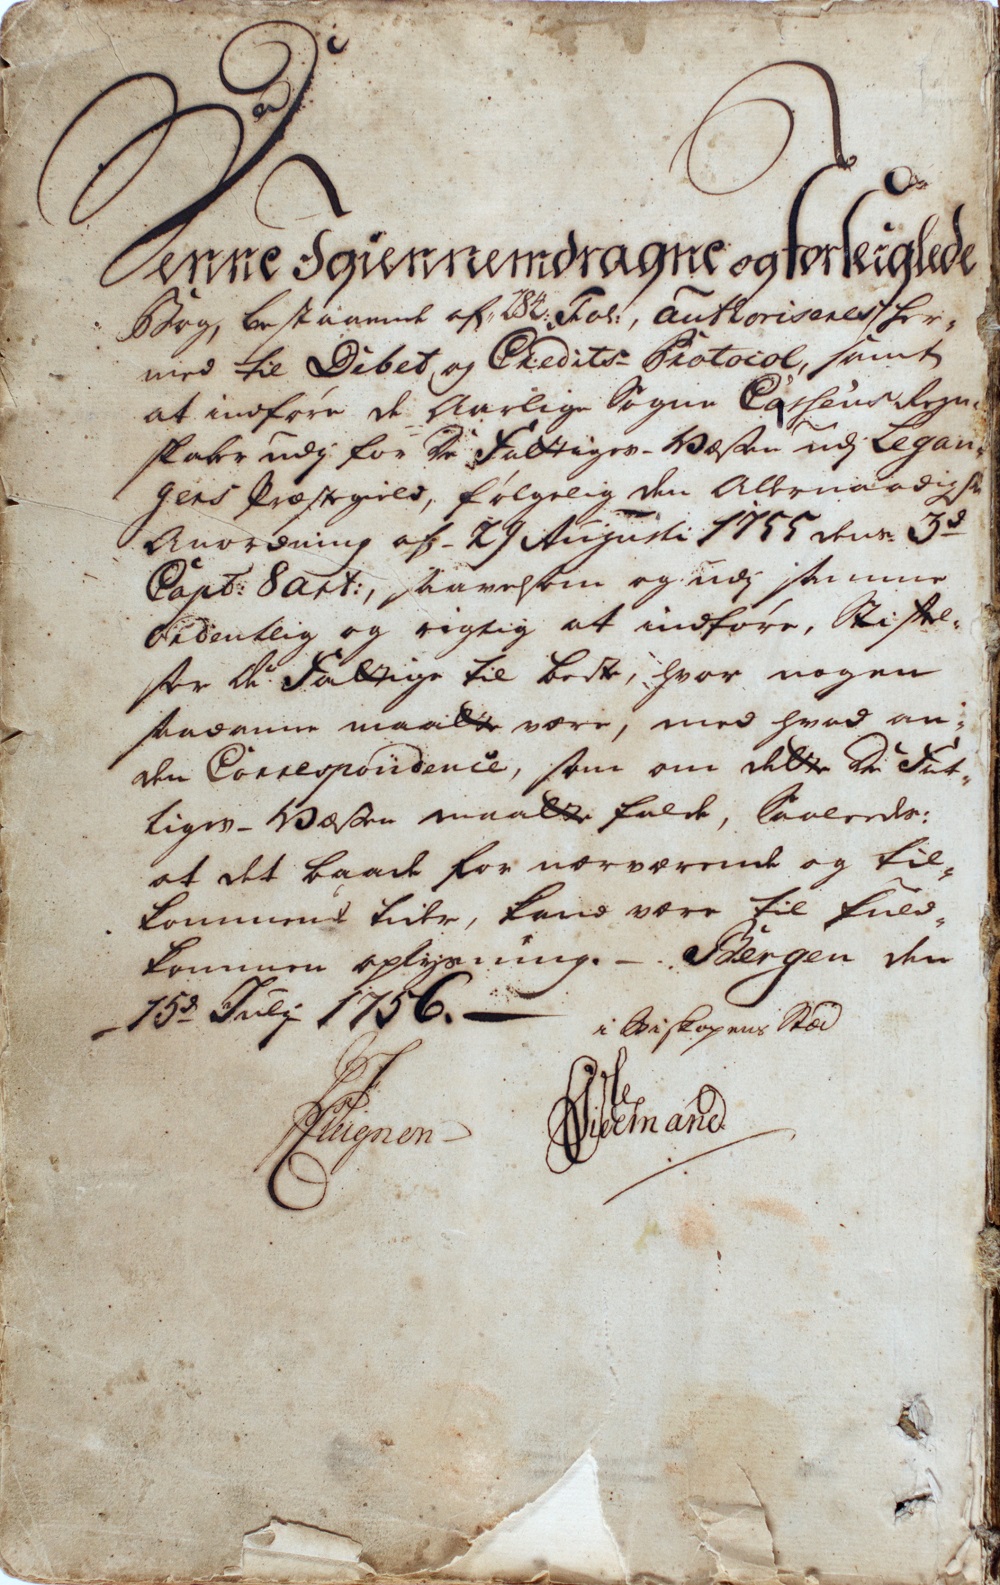 Denne Igiennemdragne og forseiglede
Bog, bestaaende af 284: Fol:, authoriseres her-
med til Debet og Credits-Protocol, samt
at indføre de Aarlige Sogne Cassens Regn-
skaber udj for De Fattiges-Væssen udj Legan-
gers Præstegield, følgelig den Allernaadigste
Anordning af 29 Augusti 1755 dens 3d
Capt: 8 art:, saavelsom og udj samme
Ordentlig og rigtig at indføre, Stiftel-
ser De Fattige til beste, hvor nogen
saadanne maatte være, med hvad an-
den Correspondence, som om dette De Fat-
tiges-Væssen maatte falde, Saaleedes:
at det baade for nærværende og til-
kommende tider, kand være til fuld-
kommen oplysning. – Bergen den
15d Julij 1756. —
i Biskopens Stæd
Ole
Tidemand